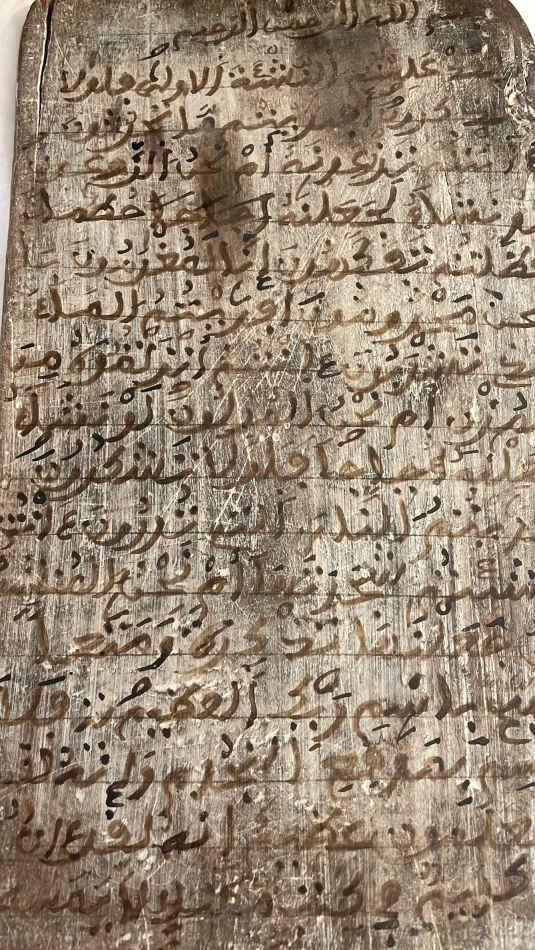 بسم الله الرحمن الرحيم
علمتم النشأة الاولى فلولا
تذكرون أفريتم ما تحرثون
ءانتم تزرعونه أم نحن الزرعون
لو نشاء لجعلنه حطما
فظلتم تفكهون إنا لمغرمون بل
نحن محرومون أفريتم الماء
تشربون ءانتم أنزلتموه من
المزن أم نحن المنزلون لو نشاء
جعلنه أجاجا فلولا تشكرون
أفريتم النار التي تورون ءانتم
أنشأتم شجرتها أم نحن المنشئون
جعلنها تذكرة ومتعا
باسم ربك العظيم فلا
بموقع النجوم وإنه
تعلمون عظيم إنه لقرءان
كريم في كتب مكنون لا يمسه